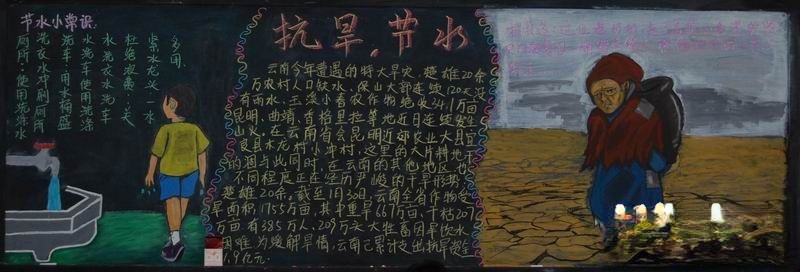 抗旱,节水
节水小常识:
多用.
紧水龙头一水
杜绝浪费:关
水洗衣水洗车
水洗车使用洗涤
洗车:用水桶盛
洗衣水冲刷厕所
厕所:使用洗涤水
云南今年遭遇的特大旱灾,楚雄20余
万农村人口缺水,保山大部连续120天没
有雨水,玉溪小春农作物绝收34.1万亩
昆明、曲靖、香格里拉等地近日连续发生
山火。在云南省会昆明近郊农业大县宜
良县木龙村小牛村,这里的大片耕地干
不同程度正在经历严峻的干旱形势,
楚雄20余。截至1月30日,云南全省作物受
旱面积1755万亩,其中重旱667万亩,干枯207
万亩有385万人、209万头大牲畜因旱饮水
困难为缓解旱情,云南已累计支出抗旱资金
1.9亿元.